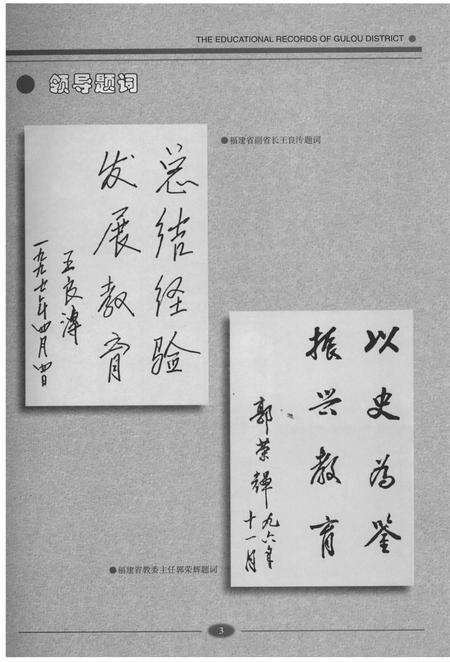 THE EDUCATIONAL RECORDS OF GULOU DISTRICT
领导题词
福建省副省长王良溥题词
总结经验
发展教育
王良溥
一九九七年四月四日
以史为鉴
振兴教育
郭荣辉
九六年
十一月
福建省教委主任郭荣辉题词
3